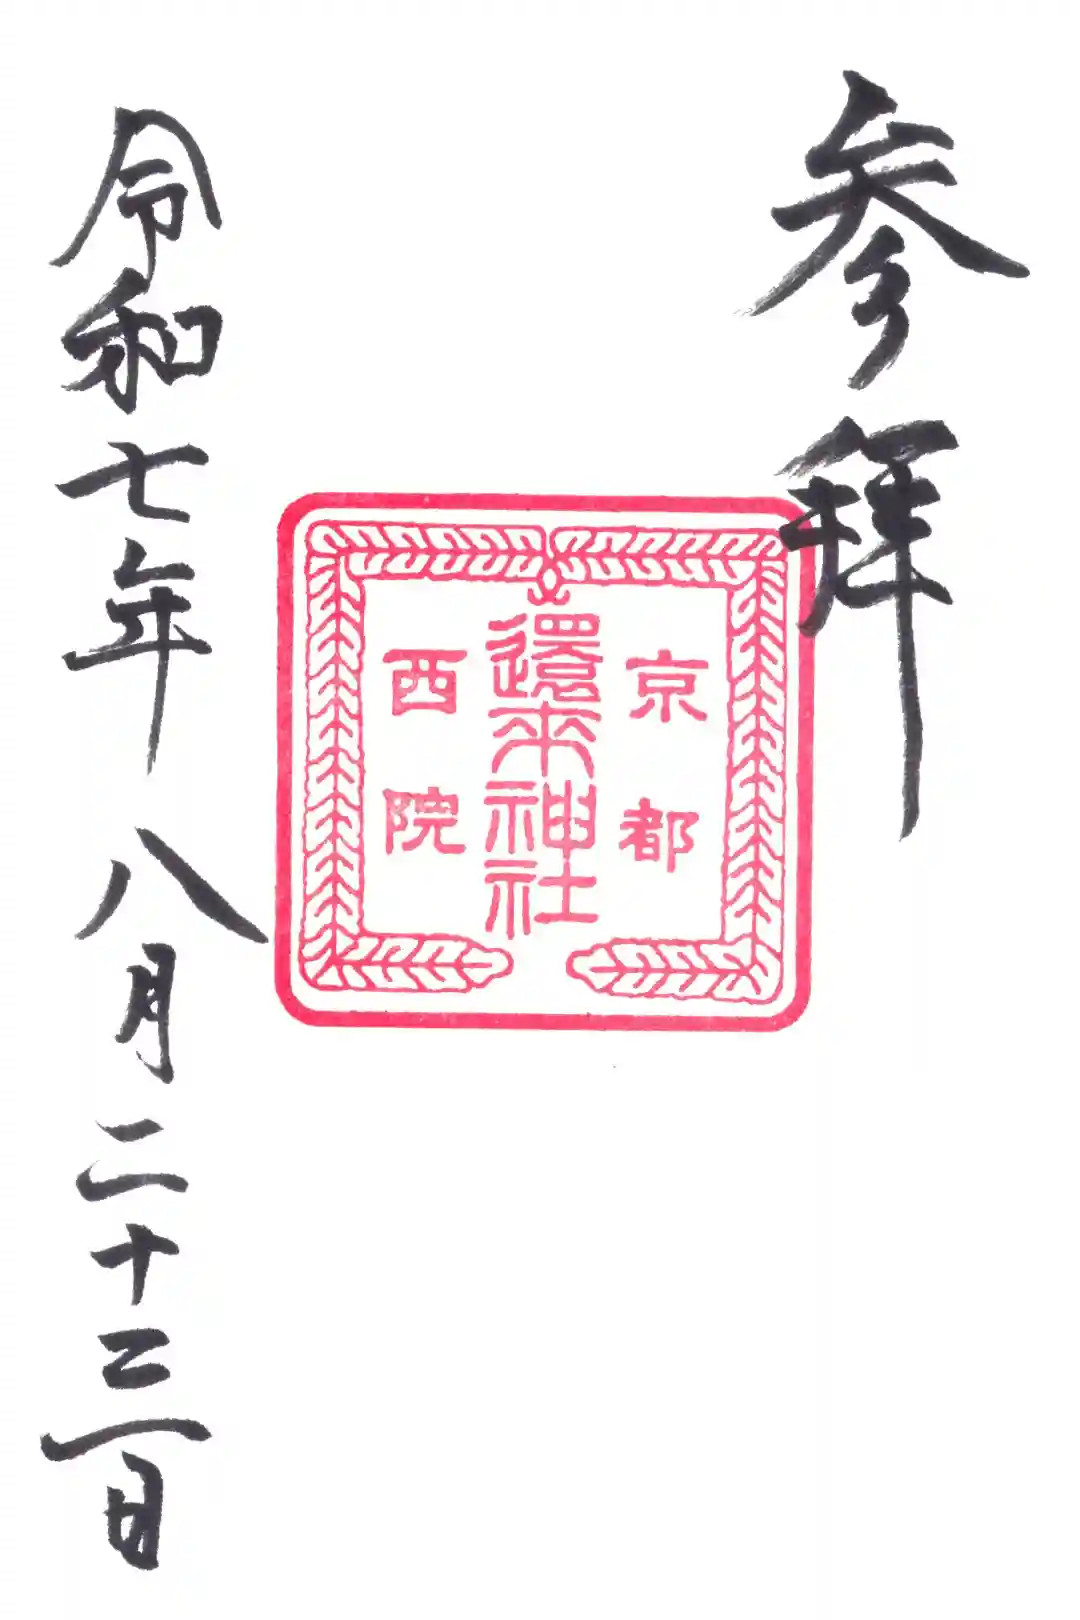 参拝
京都
還来神社
西院
令和七年八月二十三日